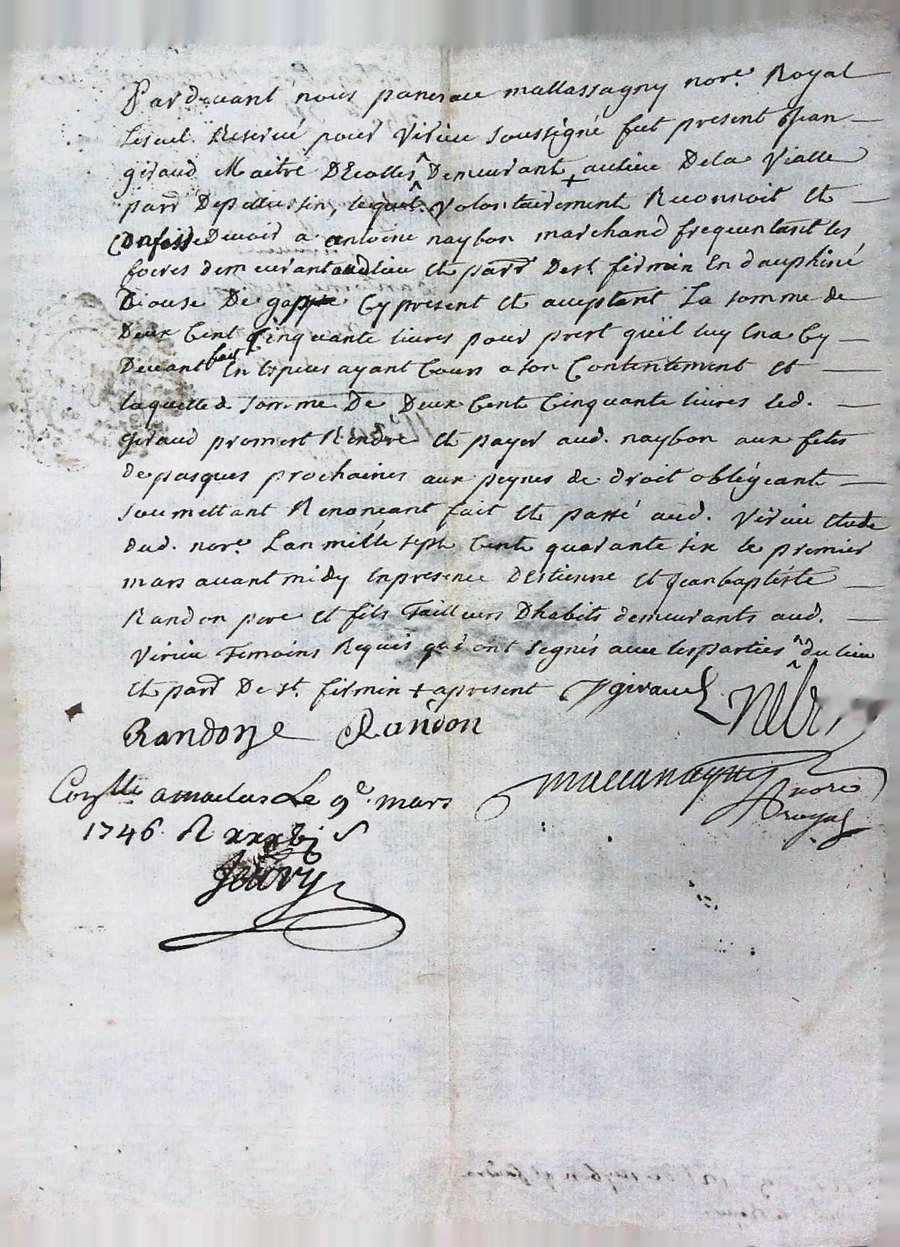 Pardevant nous pancrace mallassagny nore. Royal
Leseul Reservé pour Virieu soussigné fut present Jean
giraud Maitre DEcolles Demeurant + aulieu Dela Vialle
parr Depellussin, lequel Volontairement Reconnoit Et
Confesse Devoir a antoine naybon marchand frequentant les
foires demeurant audlieu Et parr Dest. firmin En dauphiné
Diouse De gapp Cy present Et aceptant La somme de
Deux Cent Cinquante livres pour prest qu'il luy Ena Cy
Devant fait En Especes ayant Cours a son Contentement Et
laquelled. somme De Deux Cent Cinquante livres led.
Giraud promest Rendre Et payer aud. naybon aux fetes
de pasques prochaines aux peynes de droit obligeant
soumettant Renonceant fait Et passé aud. Virieu Etude
dud. nore. Lan mille sept Cent quarante six le premier
mars avant midy Enpresence Destienne Et Jeanbaptiste
Randon pere Et fils Tailleurs Dhabits demeurants aud.
Virieu Temoins Requis qui ont segnés avec lesparties du lieu
Et parr De st. firmin + apresent Jgiraud
Randon Randon
nore
royal
Conlle amaclas Le 9e. mars
1746. R